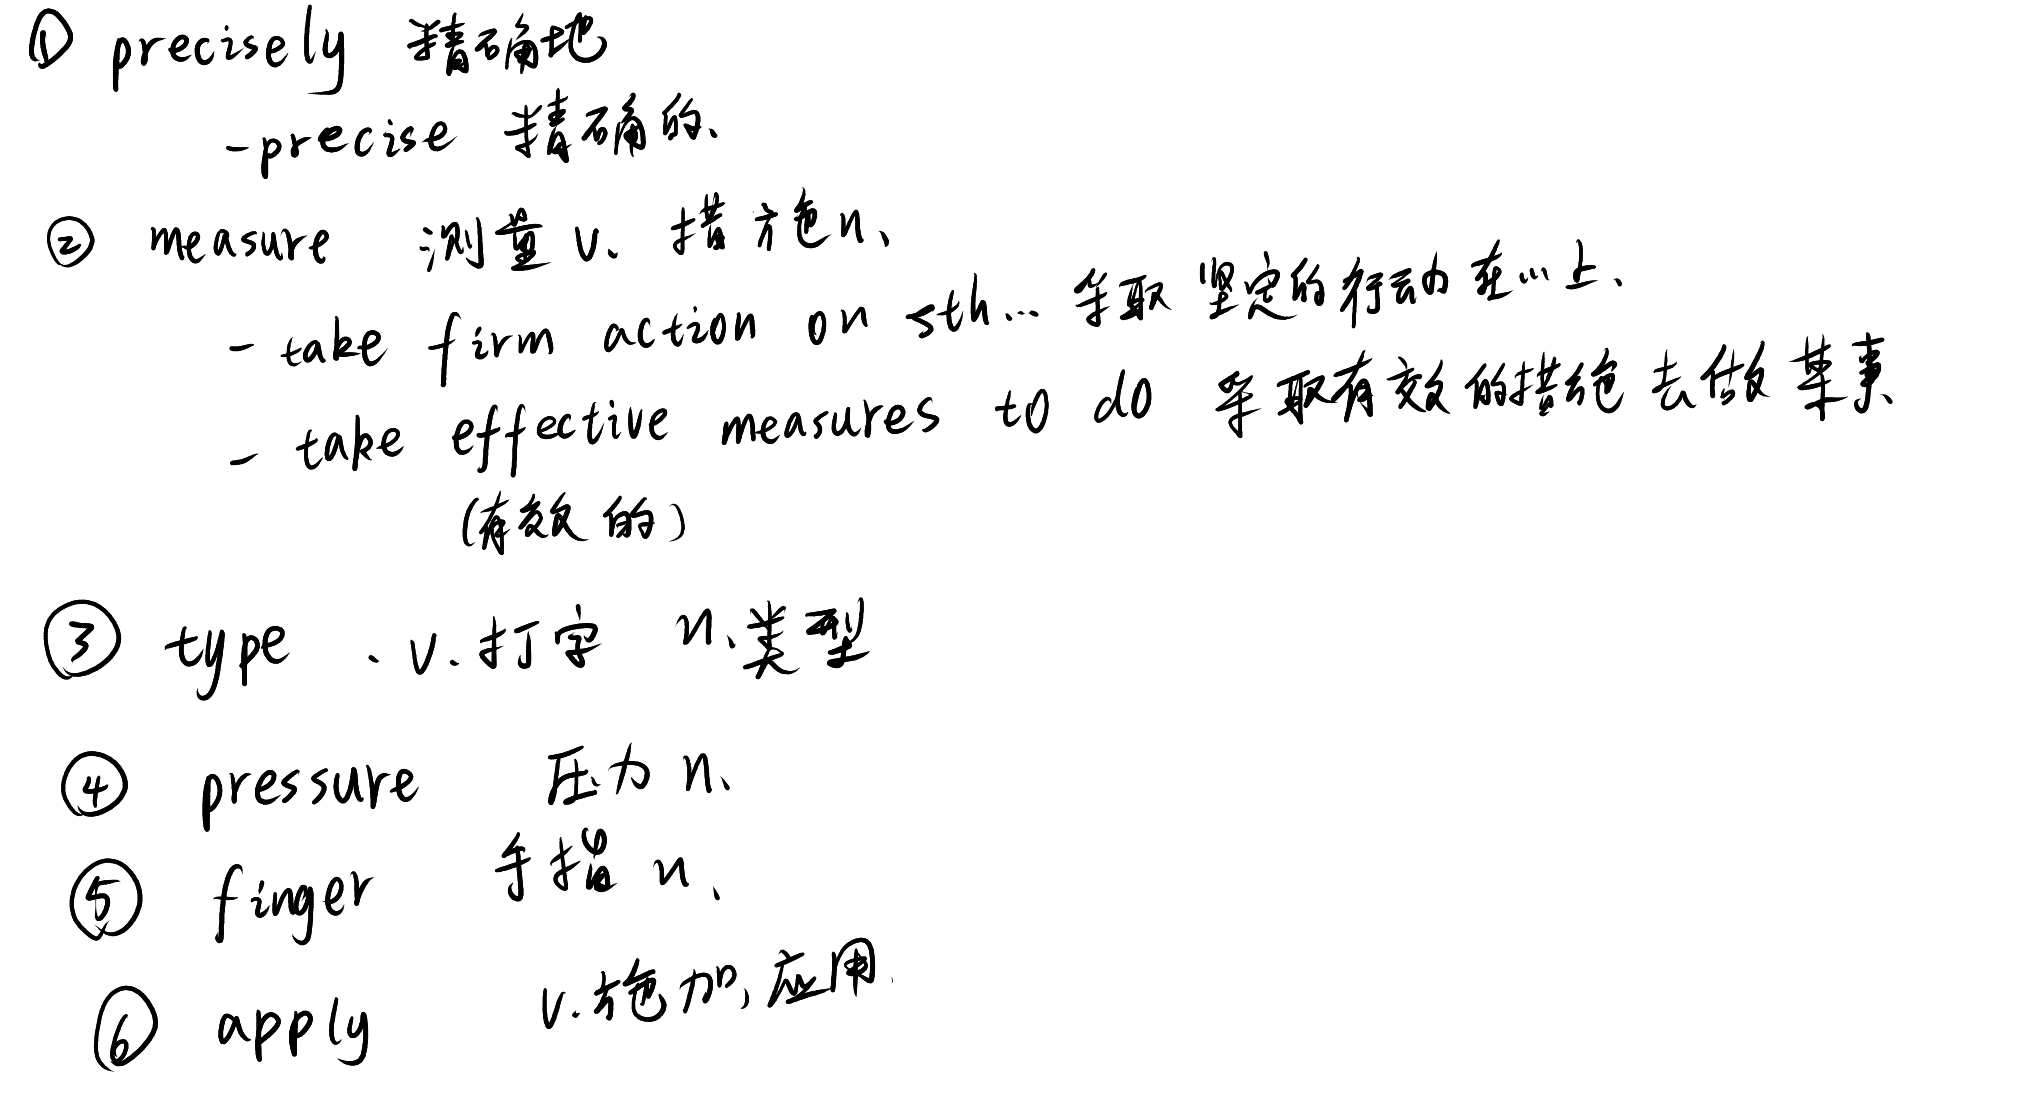 ① precisely 精确地
-precise 精确的、
② measure 测量 v. 措施n、
- take firm action on sth... 采取 坚定的行动 在...上、
- take effective measures to do 采取有效的措施 去做某事
(有效的)
③ type . v.打字 n、类型
④ pressure 压力 n、
⑤ finger 手指 n、
⑥ apply v.施加,应用.